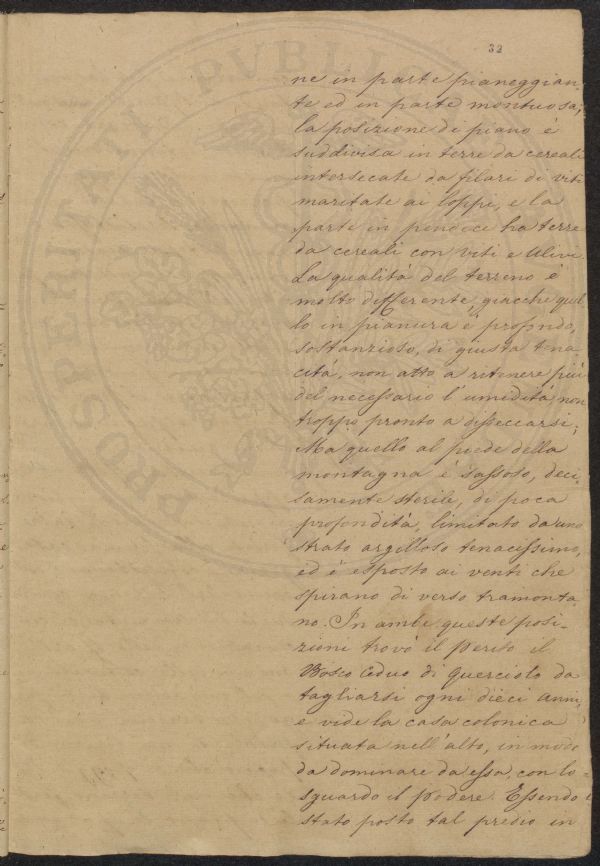 32
ne in parte pianeggian
te ed in parte montuosa;
la posizione di piano è
suddivisa in terre da cereali
intersecate da filari di viti
maritate ai loppi, e la
parte in pendice ha terre
da cereali con viti e Ulivi.
La qualità del terreno è
molto differente, giacchè quel
lo in pianura è profondo,
sostanzioso, di giusta tena
cità, non atto a ritenere più
del necessario l'umidità, non
troppo pronto a disseccarsi;
Ma quello al piede della
montagna è sassoso, deci
samente sterile, di poca
profondità, limitato da uno
strato argilloso tenacissimo,
ed è esposto ai venti che
spirano di verso tramonta
no. In ambe queste posi-
zioni trovò il Perito il
Bosco Ceduo di querciolo da
tagliarsi ogni dieci anni,
e vide la casa colonica
situata nell'alto, in modo
da dominare da essa, con lo
sguardo il podere. Essendo
stato posto tal predio in
PROSPERITATI PVBLICAE